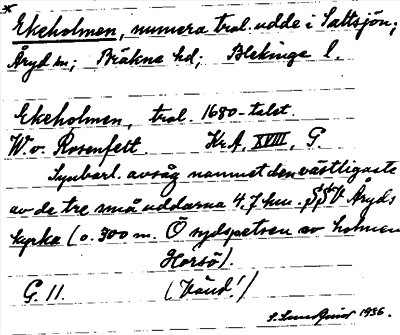 * Ekeholmen, numera trol. udde i Saltsjön;
Åryd sn; Bräkne hd; Blekinge l.
Ekeholmen, trol. 1680-talet.
W. v. Rosenfelt. Kr.A, XVIII, G.
Synbarl. avsåg namnet den västligaste
av de tre små uddarna 4,7 km. SSV Åryds
kyrka (o. 300 m. Ö sydspetsen av holmen
Horsö).
G. 11. (Vänd!)
1936.